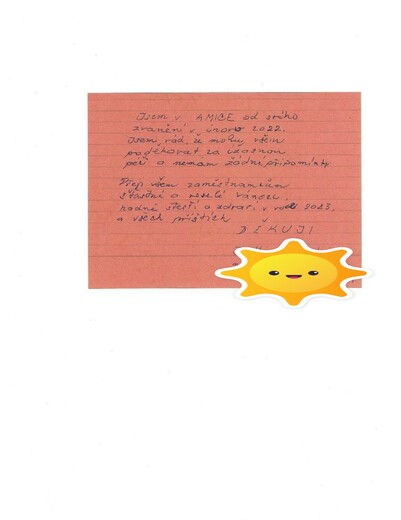 Jsem v AMICE od svého
zranění v únoru 2022.
Jsem rád, že mohu všem
poděkovat za úžasnou
péči a nemám žádné připomínky.
Přeji všem zaměstnancům
šťastné a veselé vánoce,
hodně štěstí a zdraví v roce 2023,
a všech příštích
DĚKUJI